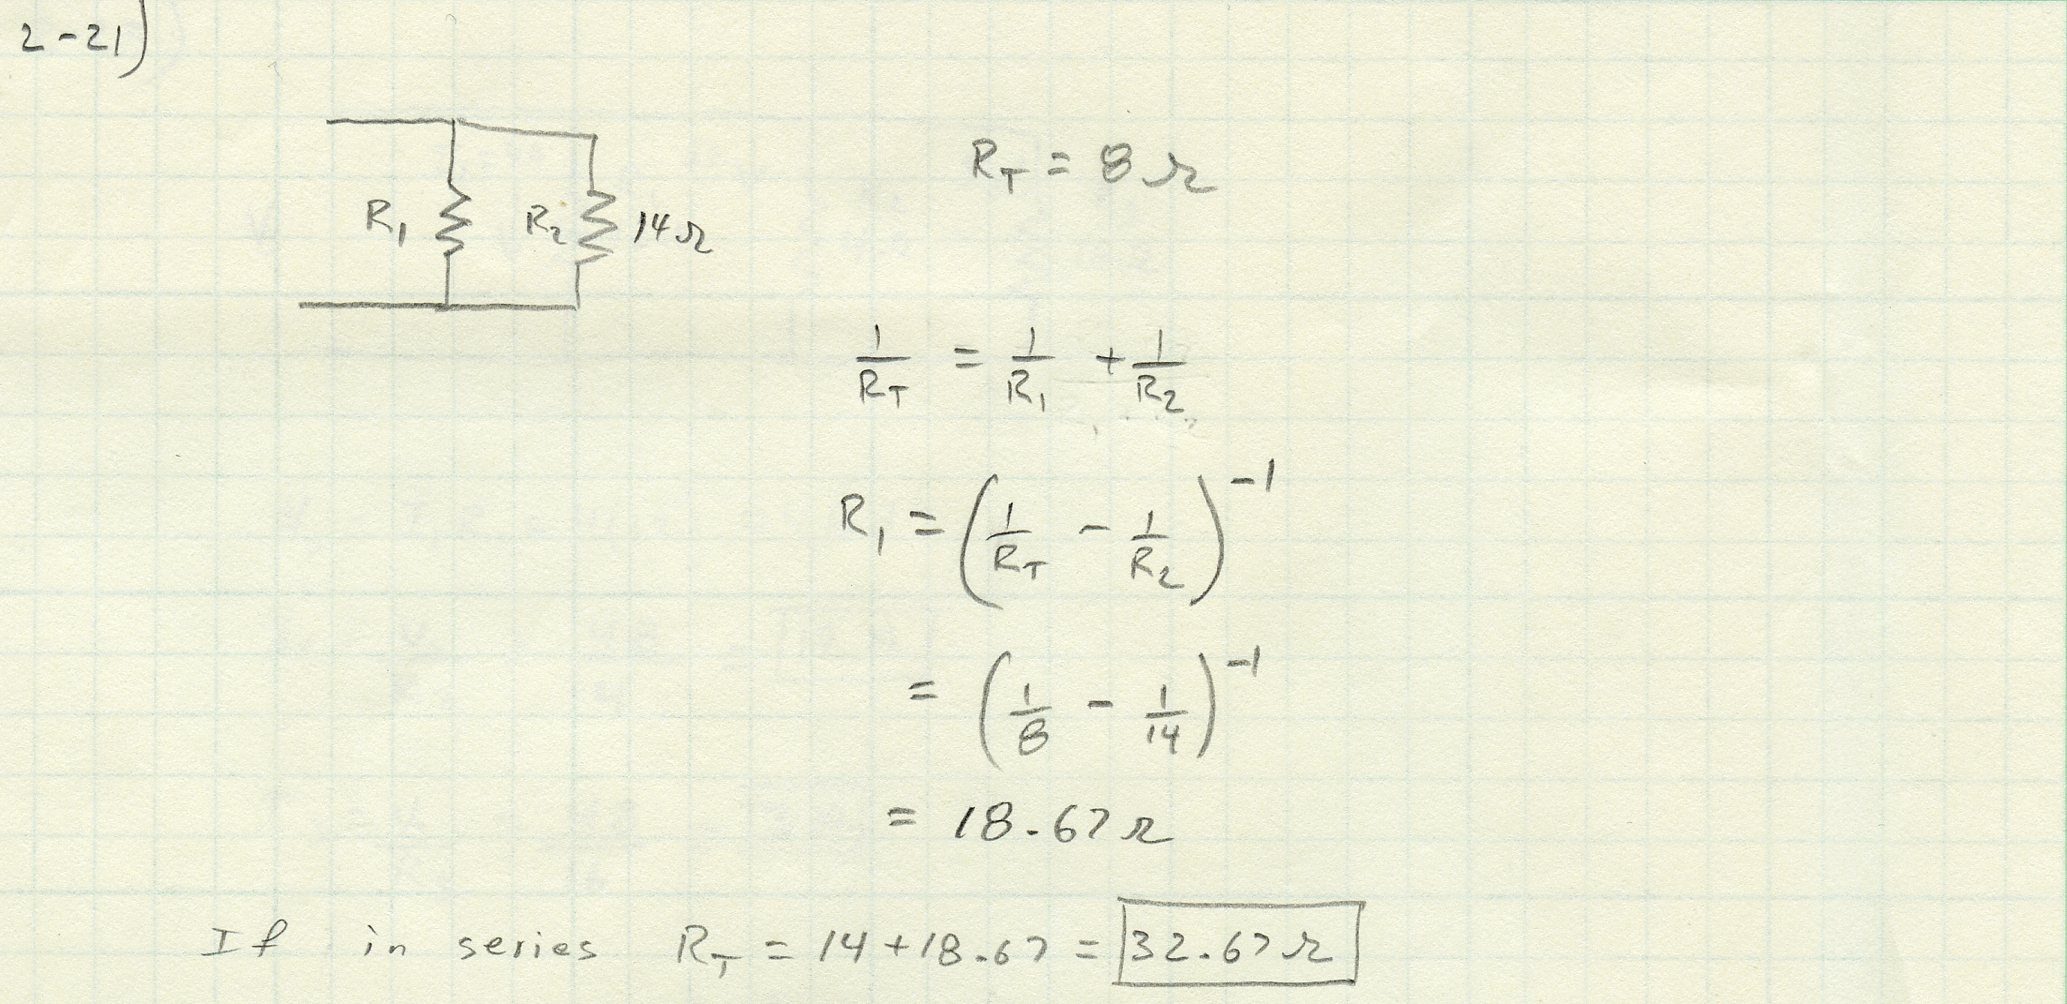 2-21)
R₁ R₂ 14Ω
R_T = 8Ω
1/R_T = 1/R₁ + 1/R₂
R₁ = (1/R_T - 1/R₂)⁻¹
= (1/8 - 1/14)⁻¹
= 18.67Ω
If in series R_T = 14 + 18.67 = 32.67Ω